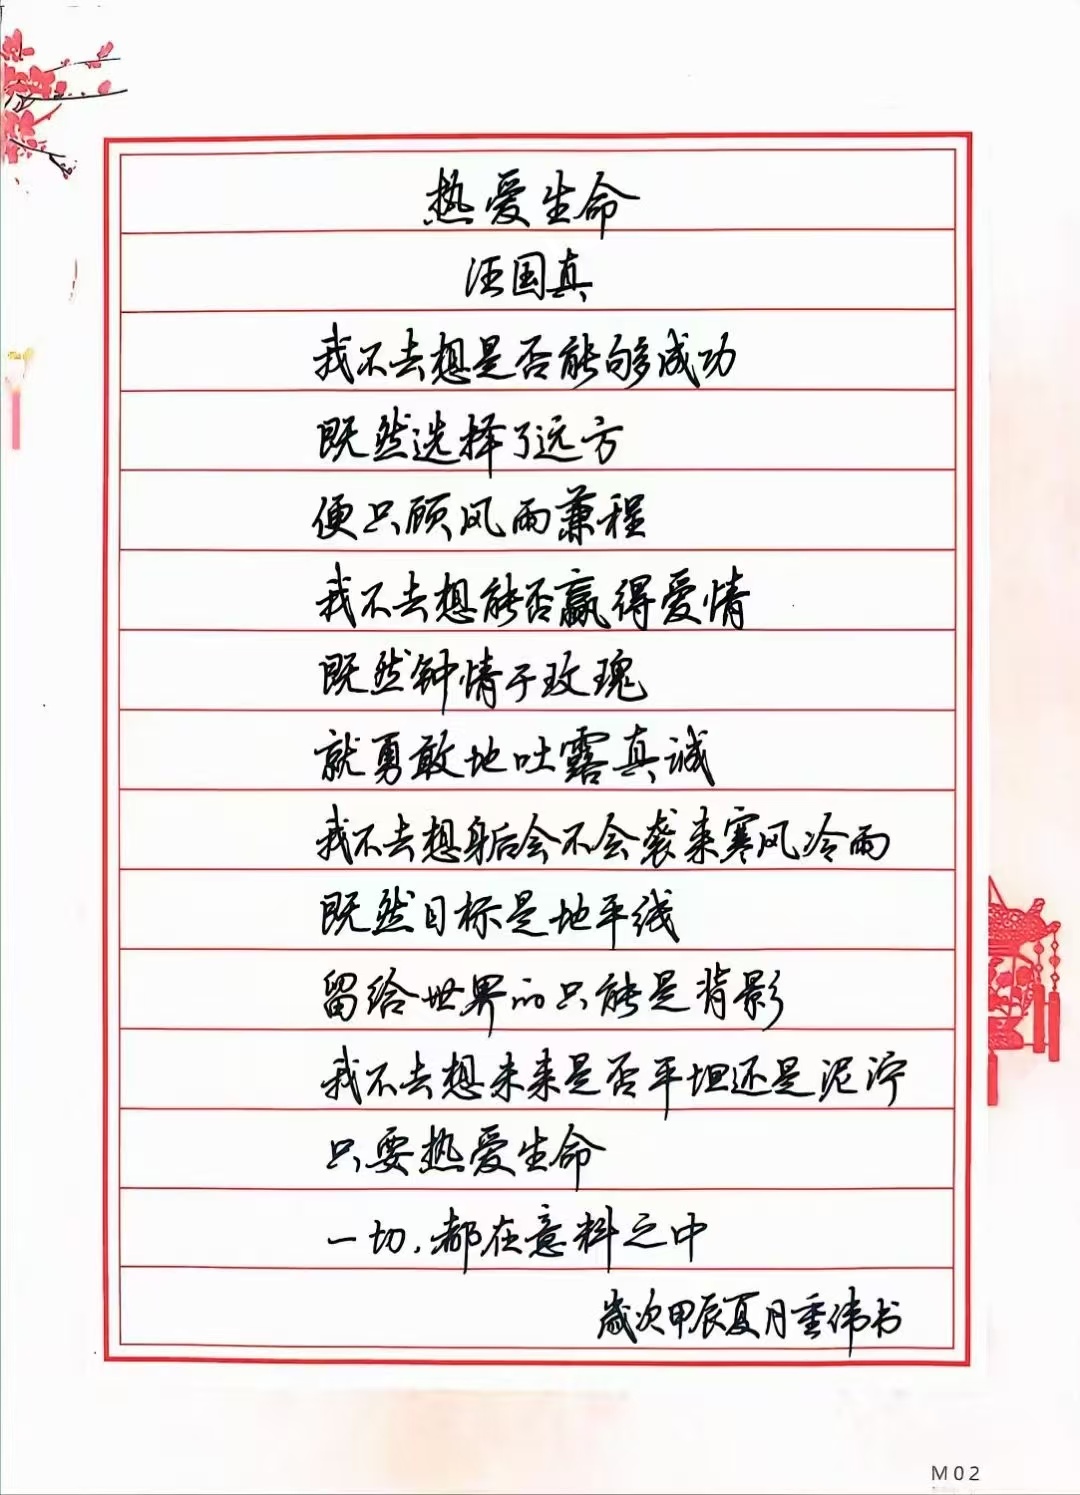 热爱生命
汪国真
我不去想是否能够成功
既然选择了远方
便只顾风雨兼程
我不去想能否赢得爱情
既然钟情于玫瑰
就勇敢地吐露真诚
我不去想身后会不会袭来寒风冷雨
既然目标是地平线
留给世界的只能是背影
我不去想未来是否平坦还是泥泞
只要热爱生命
一切,都在意料之中
岁次甲辰夏月重伟书
M02